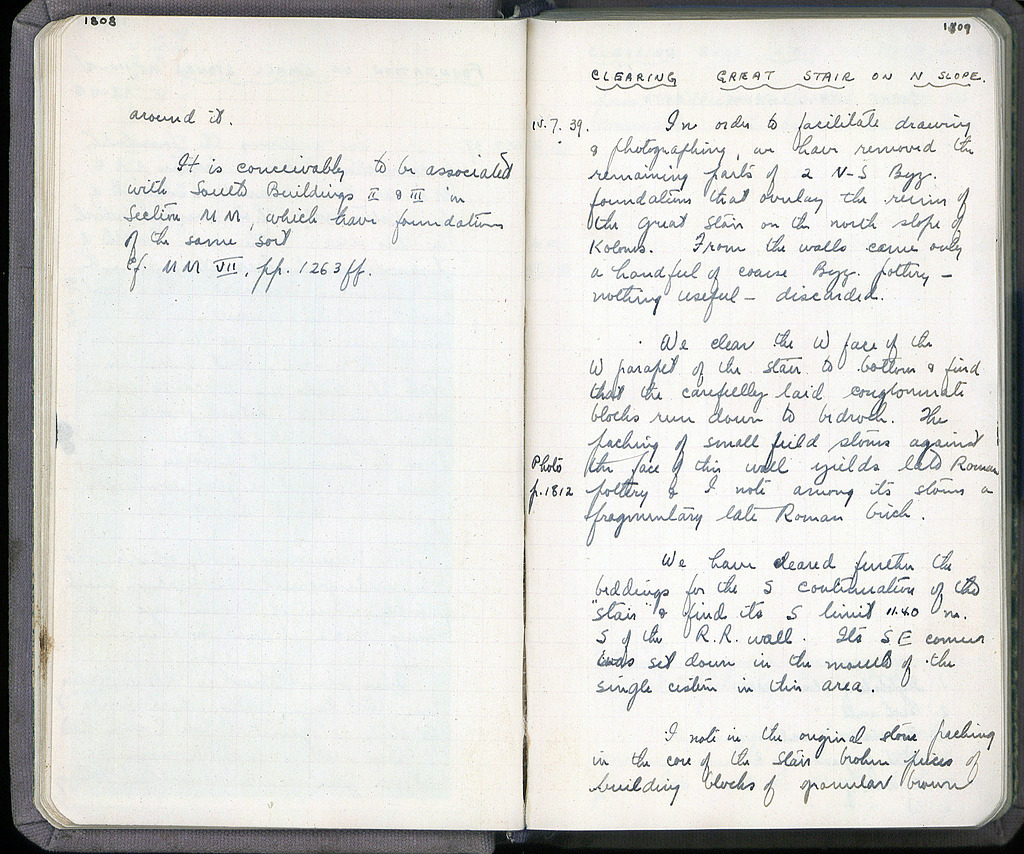 1808
around it.
It is conceivably to be associated
with South Buildings II & III in
Section MM, which have foundations
of the same sort
Cf. MM VII, pp. 1263 ff.
1809
CLEARING GREAT STAIR ON N SLOPE.
15.7.39. In order to facilitate drawing
& photographing, we have removed the
remaining parts of 2 N-S Byz.
foundations that overlay the ruins of
the great stair on the north slope of
Kolonos. From the walls came only
a handful of coarse Byz. pottery –
nothing useful – discarded.
We clear the W face of the
W parapet of the stair to bottom & find
that the carefully laid conglomerate
blocks run down to bedrock. The
packing of small field stones against
Photo the face of this wall yields late Roman
p.1812 pottery & I note among its stones a
fragmentary late Roman brick.
We have cleared further the
beddings for the S continuation of the
"stair" & find its S limit 11.40 m.
S of the R.R. wall. Its SE corner
was set down in the mouth of the
single cistern in this area.
I note in the original stone packing
in the core of the stair broken pieces of
building blocks of granular brown